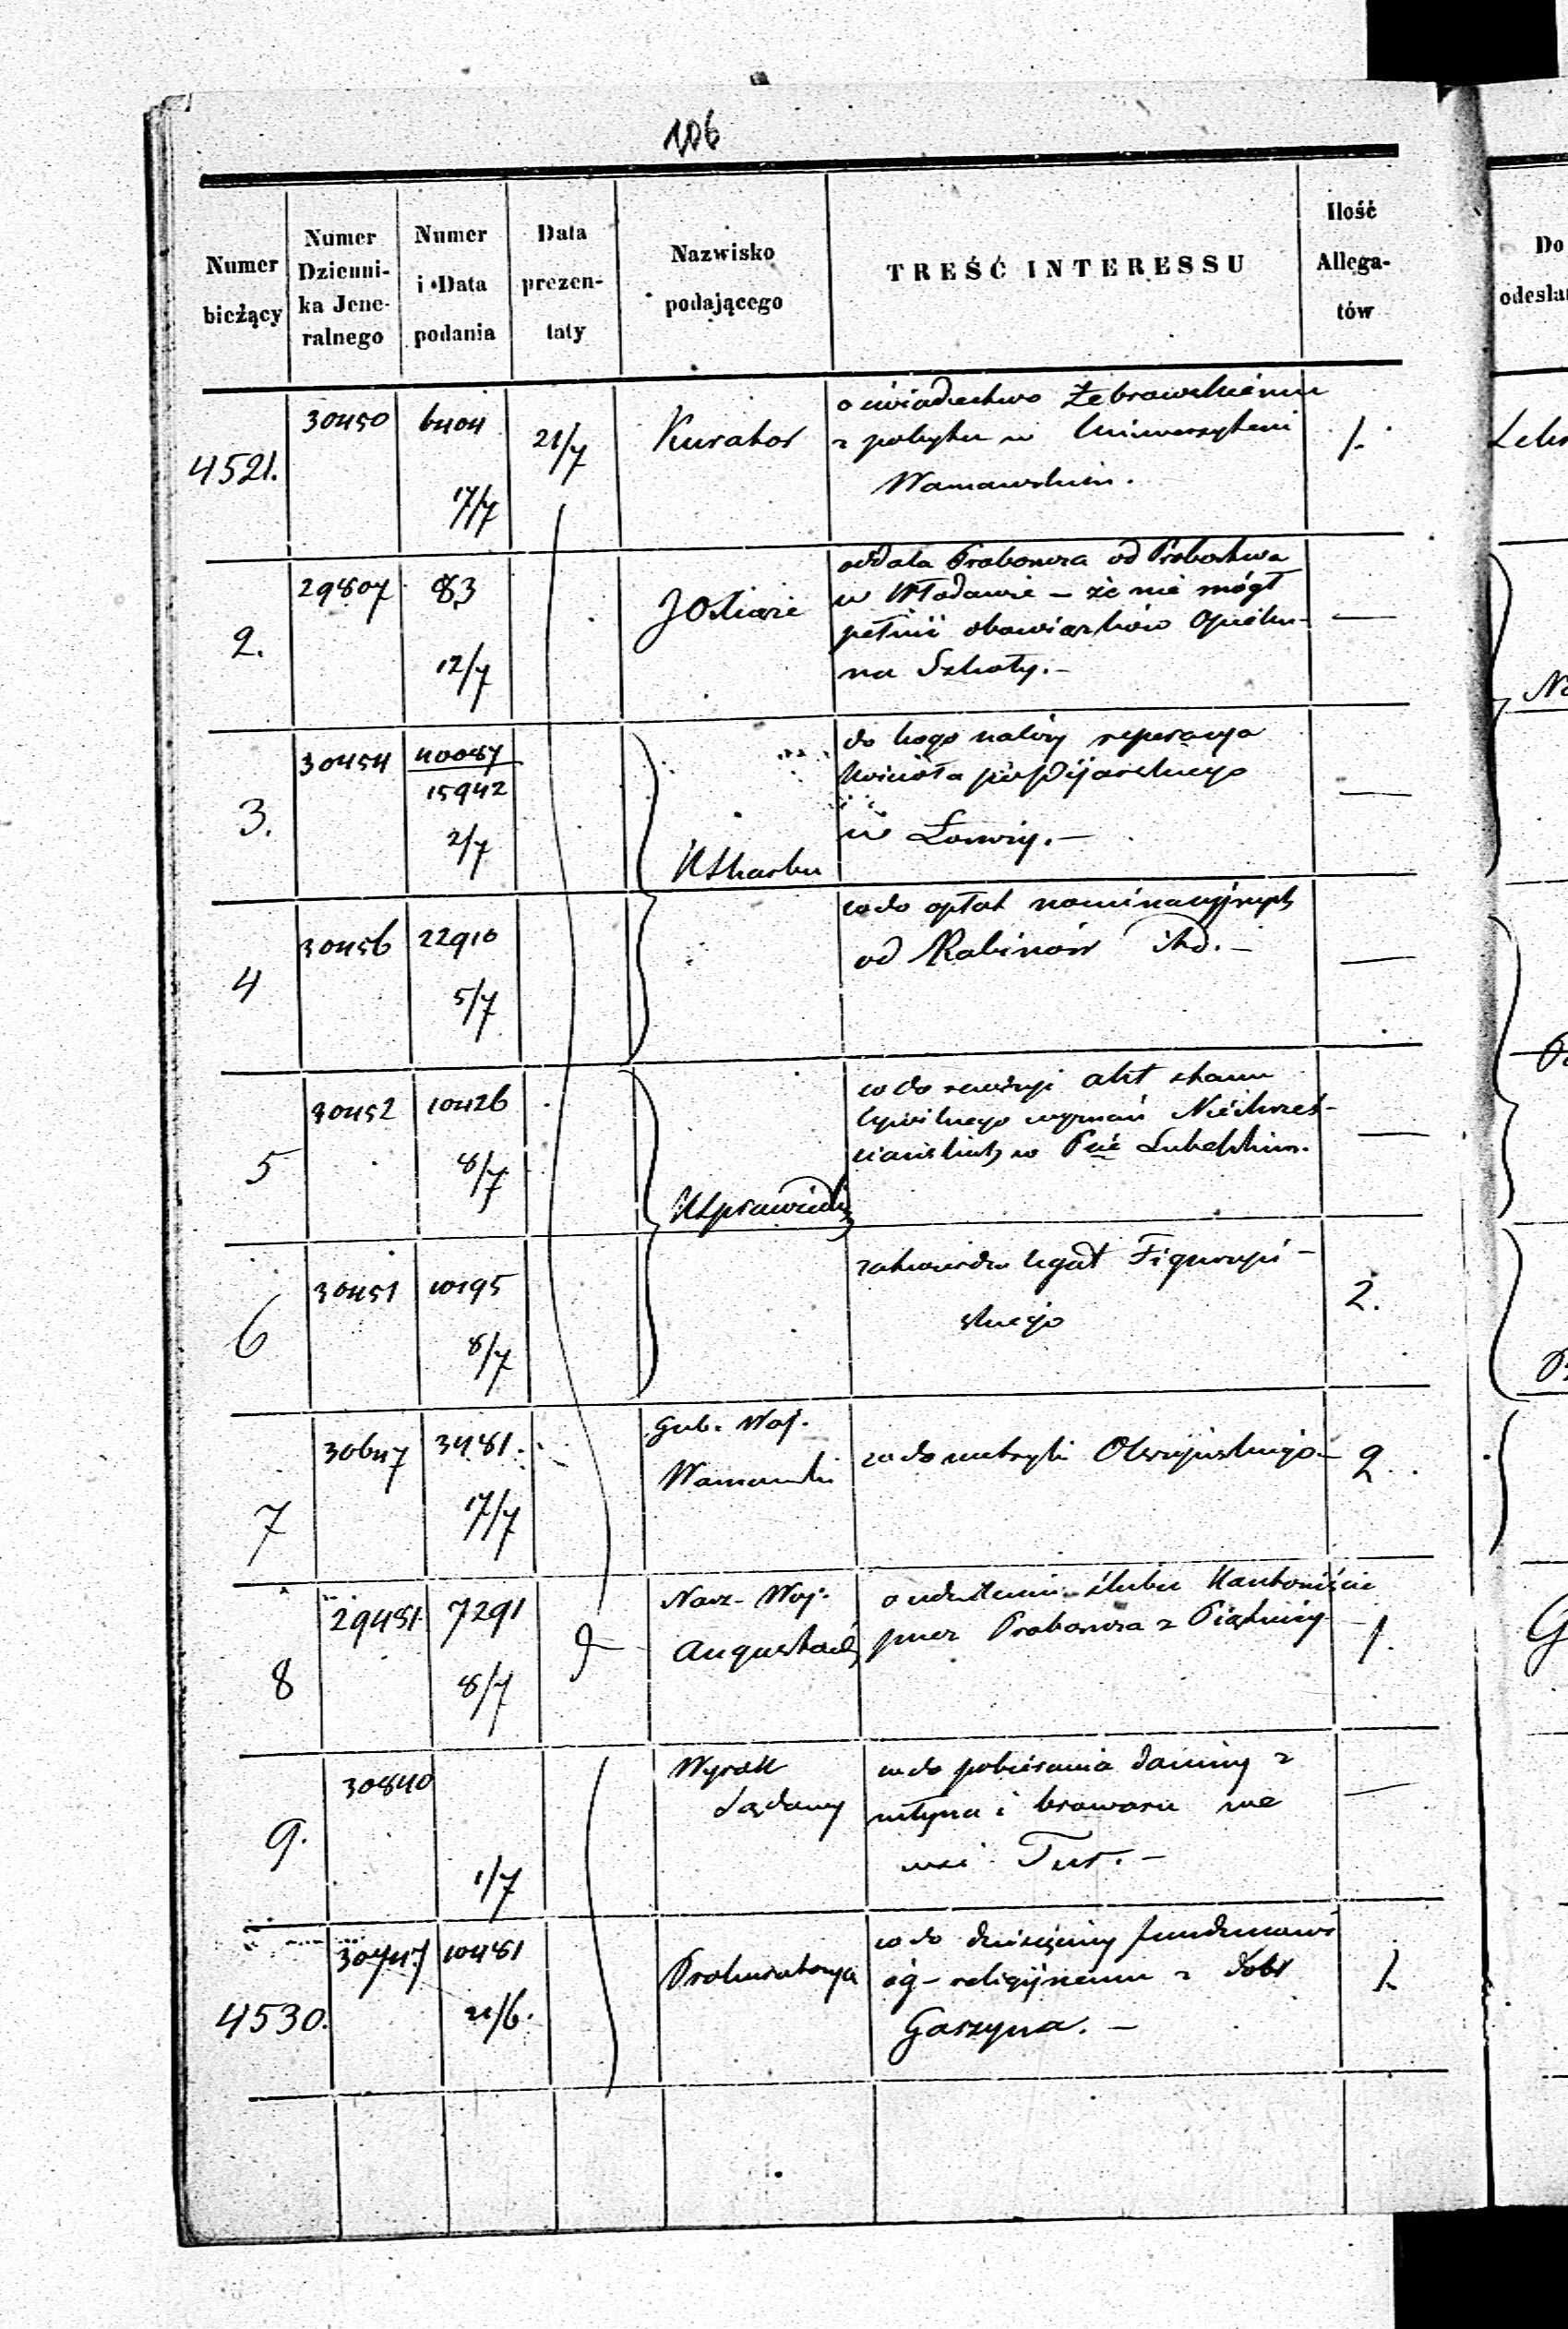 106
Numer bieżący | Numer Dzienni-ka Jene-ralnego | Numer i Data podania | Data prezen-taty | Nazwisko podającego | TREŚĆ INTERESSU | Ilość Allega-tów
Do
odesła
4521. | 30450 | 6404 17/7 | 21/7 | Kurator | 1.
o świadectwo Żebrawskiemu
z pobytu w Uniwersytecie
Warszawskim.
2. | 29807 | 83 12/7 | —
oddala Proboszcza od Probostwa
w Włodawie – że nie mógł
pełnić obowiązków Opieku-
na Szkoły. –
3. | 30454 | 40087 15942 2/7 | KSkarbu | —
do kogo należy reperacya
kościoła po Pijarskiego
w Łowiczu. –
4 | 30456 | 22910 5/7 | —
co do opłat nominacyjnych
od Rabinów itd. –
5 | 30452 | 10426 8/7 | KSprawiedl | —
co do rewizyi akt stanu
Cywilnego wyznań Niechrześ-
ciańskich w Pcie Lubelskim.
6 | 30451 | 10195 8/7 | 2.
zatwierdza legat
skiego
7 | 30647 | 3481. 17/7 | Gub. Woj. Warszawski | 2
co do metryki
8 | 29481 | 7291 8/7 | Nacz. Woj. August | 1.
o udzieleniu ślubu Kantoniście
przez Proboszcza z Piątnicy
9. | 30840 | 1/7 | Wyrok Sądowy | —
co do pobierania daniny z
młyna i browaru we
wsi Tur. –
4530. | 30747 | 10481 21/6. | Prokuratorya | 1.
co do dziesięciny funduszowi
óg-religijnemu z dóbr
Garzyna. –